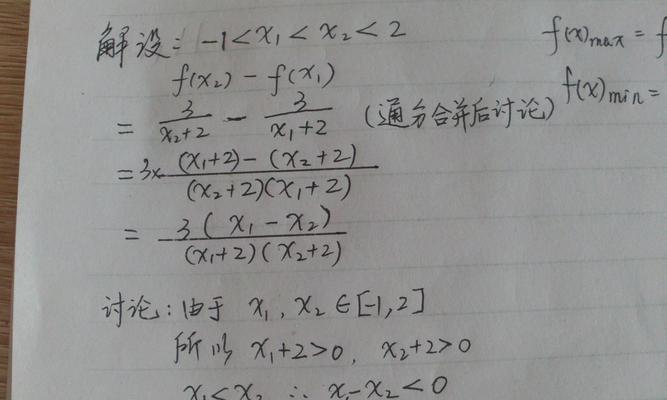 解设：-1<x₁<x₂<2
f(x₂) - f(x₁)
= 3/(x₂+2) - 3/(x₁+2) (通分合并后讨论)
=3× ((x₁+2)-(x₂+2))/((x₂+2)(x₁+2))
= 3(x₁-x₂)/((x₁+2)(x₂+2))
讨论：由于 x₁, x₂∈[-1,2]
所以 x₁+2>0, x₂+2>0
x₁<x₂ ∴ x₁-x₂<0
f(x)max = f
f(x)min =